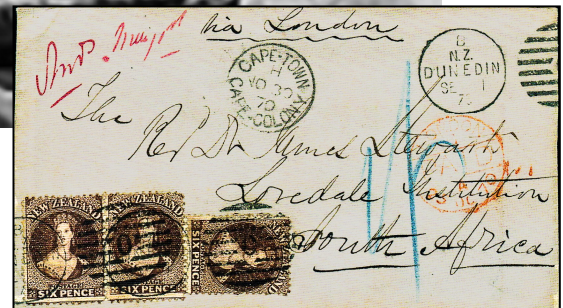 via London
CAPE-TOWN
H
NO 30
70
CAPE-COLONY
B
N.Z.
DUNEDIN
SE 1
70
The
Revd Dr James Stewart
Lovedale Institution
South Africa
NEW ZEALAND
SIX PENCE
NEW ZEALAND
POSTAGE
SIX PENCE
SIX PENCE